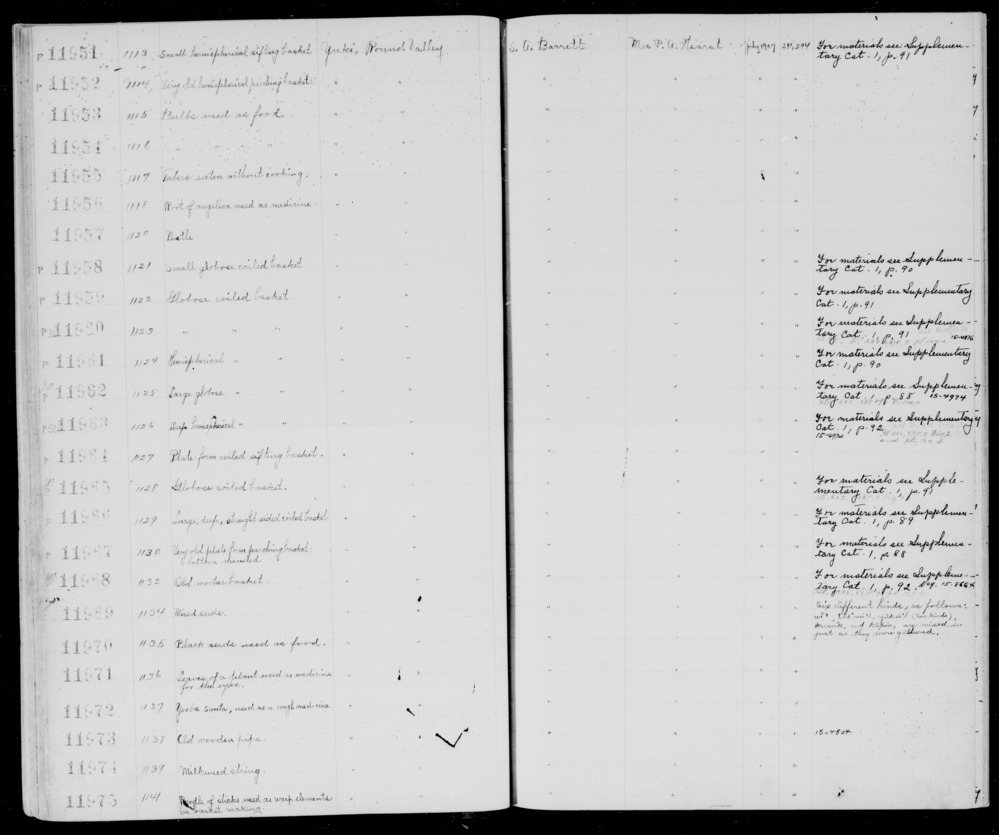 P 11951 1113 Small hemispherical sifting basket Yuki, Round Valley S. A. Barrett Mrs P. A. Hearst July 1907 For materials see Supplemen-
tary Cat. 1, p. 91
P 11952 1114 Very old hemispherical parching basket " " " " " "
11953 1115 Bulbs used as food. " " " " " "
11954 1116 " " " " " " " " " "
11955 1117 Tubers eaten without cooking. " " " " "
11956 1118 Root of angelica used as medicine " " " " " "
11957 1120 Pestle " " " "
P 11958 1121 Small globose coiled basket " " " " " " For materials see Supplemen-
tary Cat. 1, p. 90
P 11959 1122 Globose coiled basket " " " " " " For materials see Supplementary
Cat. 1, p. 91
P 11960 1123 " " " " " " " For materials see Supplemen-
tary Cat. 1, p. 91 15-4976
P 11961 1124 Hemispherical " " " " " " " For materials see Supplementary
Cat. 1, p. 90
P 11962 1125 Large globose " " " " " " " For materials see Supplemen-
tary Cat. 1, p. 88 15-4974
P 11963 1126 Deep hemispherical " " " " " " For materials see Supplementary
Cat. 1, p. 92
P 11964 1127 Plate-form coiled sifting basket. " " " " "
11965 1128 Globose coiled basket. " " " " " For materials see Supple-
mentary Cat. 1, p. 91
P 11966 1129 Large, deep, straight sided coiled basket " " " " " For materials see Supplemen-
tary Cat. 1, p. 89
P 11967 1130 Very old plate form parching basket. " " " " " For materials see Supplemen-
bottom mended tary Cat. 1, p. 88
11968 1132 Old mortar basket. " " " " " For materials see Suppleme-
tary Cat. 1, p. 92.
11969 1134 Mixed seeds. " " " " " six different kinds, as follows:
are mixed in
just as they were gathered.
11970 1135 Black seeds used as food. " " " " "
11971 1136 Leaves of a plant used as medicine " " " " "
for the eyes.
11972 1137 Yerba santa, used as a cough medicine " " " " "
11973 1138 Old wooden pipe. " " " " " 15-4804
11974 1139 Milkweed string. " " " "
11975 1141 Bundle of sticks used as warp elements " " " " "
in basket making.